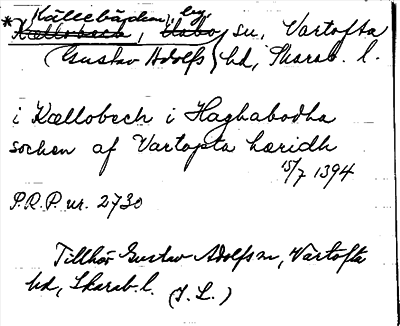 Källebäcken, by
*Kællobech, Habo sn, Vartofta
(Gustav Adolfs) hd, Skarab. l.
i Kællobech i Haghabodha
socken af Vartopta hæridh
15/7 1394
P.R.P. nr. 2730
Tillhör Gustav Adolfs sn, Vartofta
hd, Skarab. l. (J. L.)